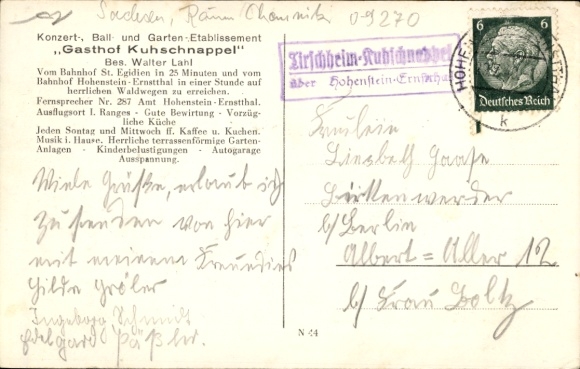 Sachsen, Raum Chemnitz 09270
Konzert-, Ball- und Garten-Etablissement
„Gasthof Kuhschnappel"
Bes. Walter Lahl
Vom Bahnhof St. Egidien in 25 Minuten und vom
Bahnhof Hohenstein-Ernstthal in einer Stunde auf
herrlichen Waldwegen zu erreichen.
Fernsprecher Nr. 287 Amt Hohenstein-Ernstthal.
Ausflugsort I. Ranges - Gute Bewirtung - Vorzüg-
liche Küche
Jeden Sonntag und Mittwoch ff. Kaffee u. Kuchen.
Musik i. Hause. Herrliche terrassenförmige Garten-
Anlagen - Kinderbelustigungen - Autogarage
Ausspannung.
Viele Grüße, erlaub ich
zu senden von hier
mit meinen
Hilde Gröler
Ingeborg Schmidt
Edelgard Päßler.
N 44
Tirschheim-Kuhschnappel
über Hohenstein-Ernstthal
6 6
Deutsches Reich
k
Fräulein
Liesbeth Haase
Birkenwerder
b/ Berlin
Albert-Aller 12
b/ Frau Boltz